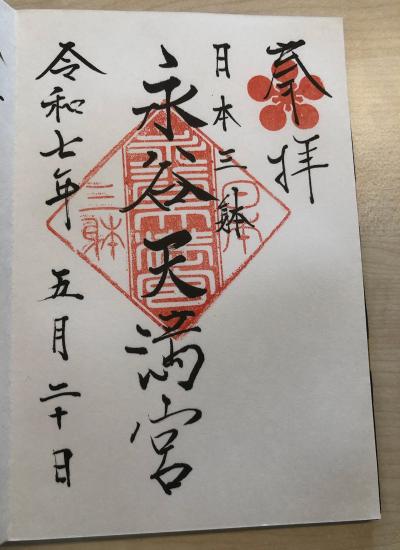 奉拝
日本三躰
永谷天満宮
令和七年 五月二十日
日本
三躰